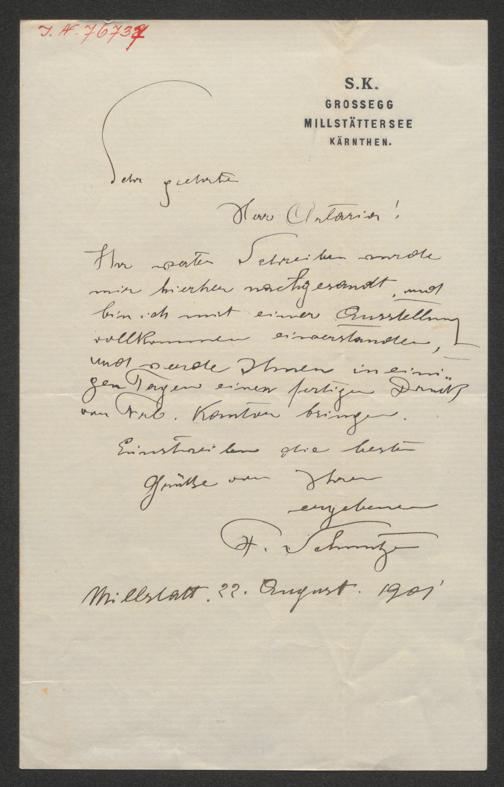 J. N. 76737
S.K.
GROSSEGG
MILLSTÄTTERSEE
KÄRNTHEN.
Sehr geehrter
Herr Artaria!
Ihr wertes Schreiben wurde
mir hierher nachgesandt, und
bin ich mit einer Ausstellung
vollkommen einverstanden,
und werde Ihnen in eini-
gen Tagen einen fertigen Druck
von Frl. bringen.
Einstweilen die besten
Grüße von Ihrem
ergebenen
Schmutzer
Millstatt. 22. August. 1901